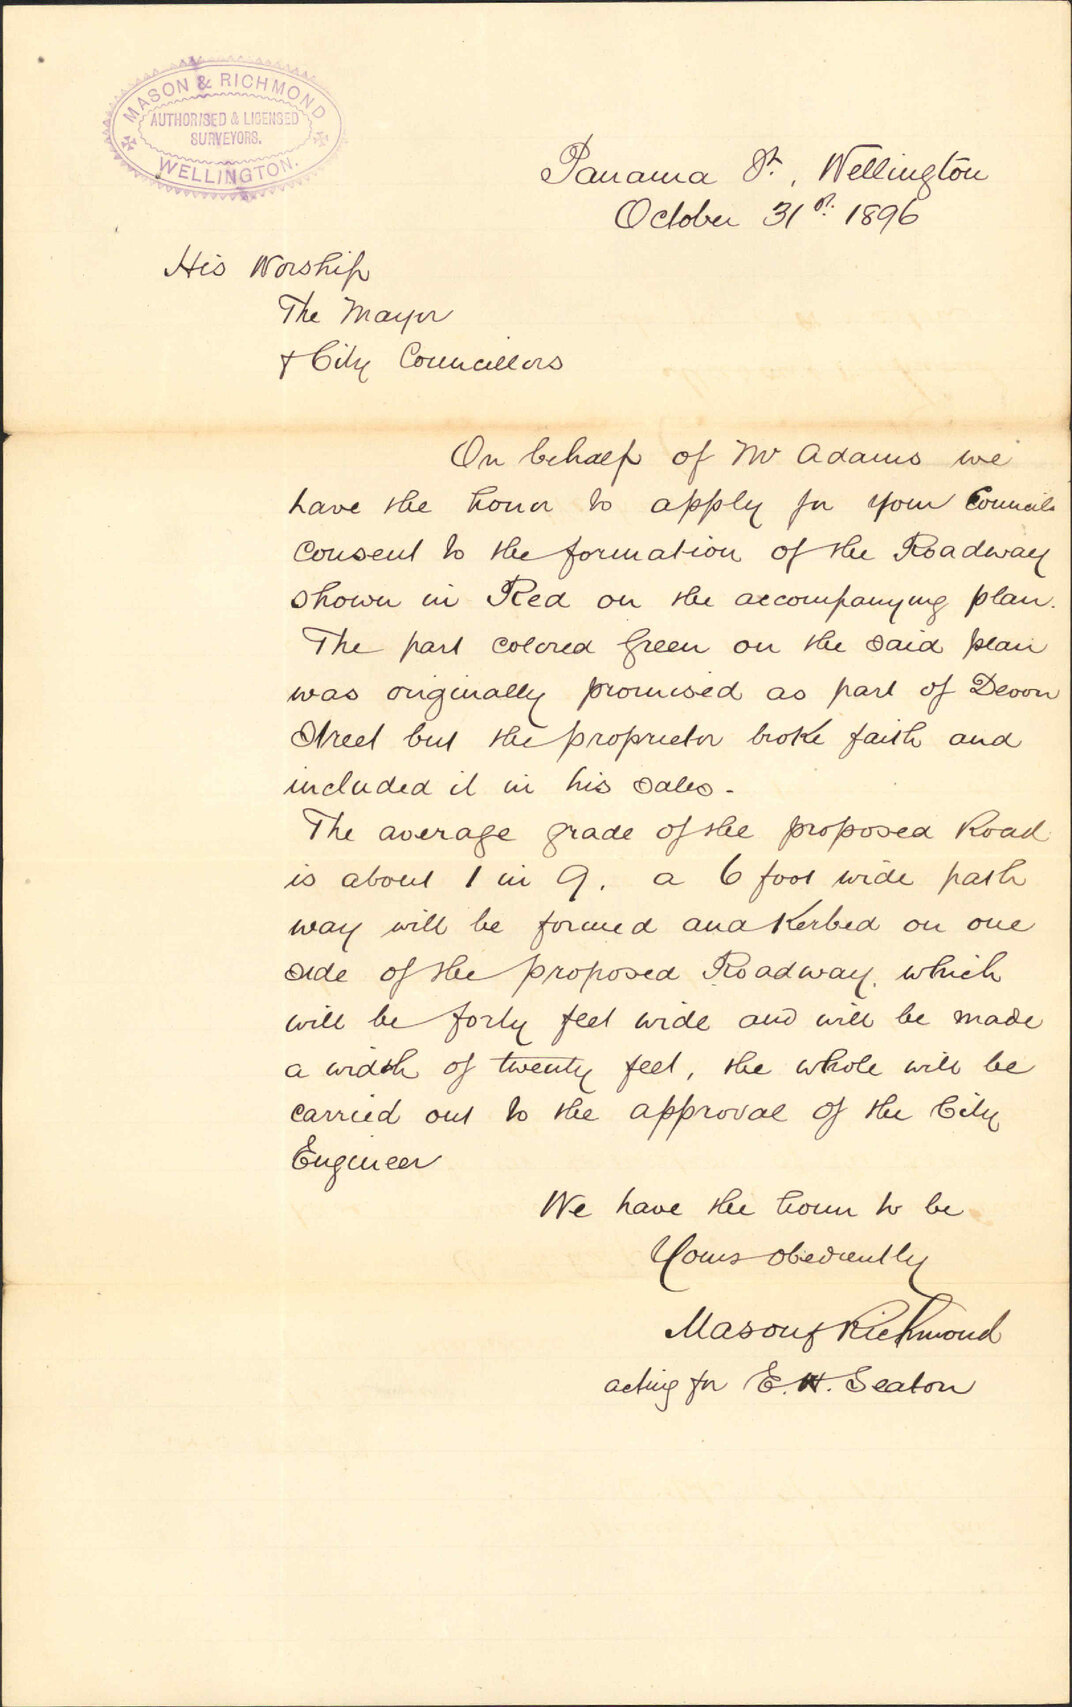 MASON & RICHMOND
AUTHORISED & LICENSED
SURVEYORS.
WELLINGTON.
Panama St., Wellington
October 31st. 1896
His Worship
The Mayor
& City Councillors
On behalf of Mr Adams we
have the honor to apply for your Councils
consent to the formation of the Roadway
shown in Red on the accompanying plan.
The part colored Green on the said plan
was originally promised as part of Devon
Street but the proprietor broke faith and
included it in his sales.
The average grade of the proposed Road
is about 1 in 9. a 6 foot wide path
way will be formed and Kerbed on one
side of the proposed Roadway, which
will be forty feet wide and will be made
a width of twenty feet, the whole will be
carried out to the approval of the City
Engineer
We have the honor to be
Yours obediently
Mason & Richmond
acting for E. H. Seaton